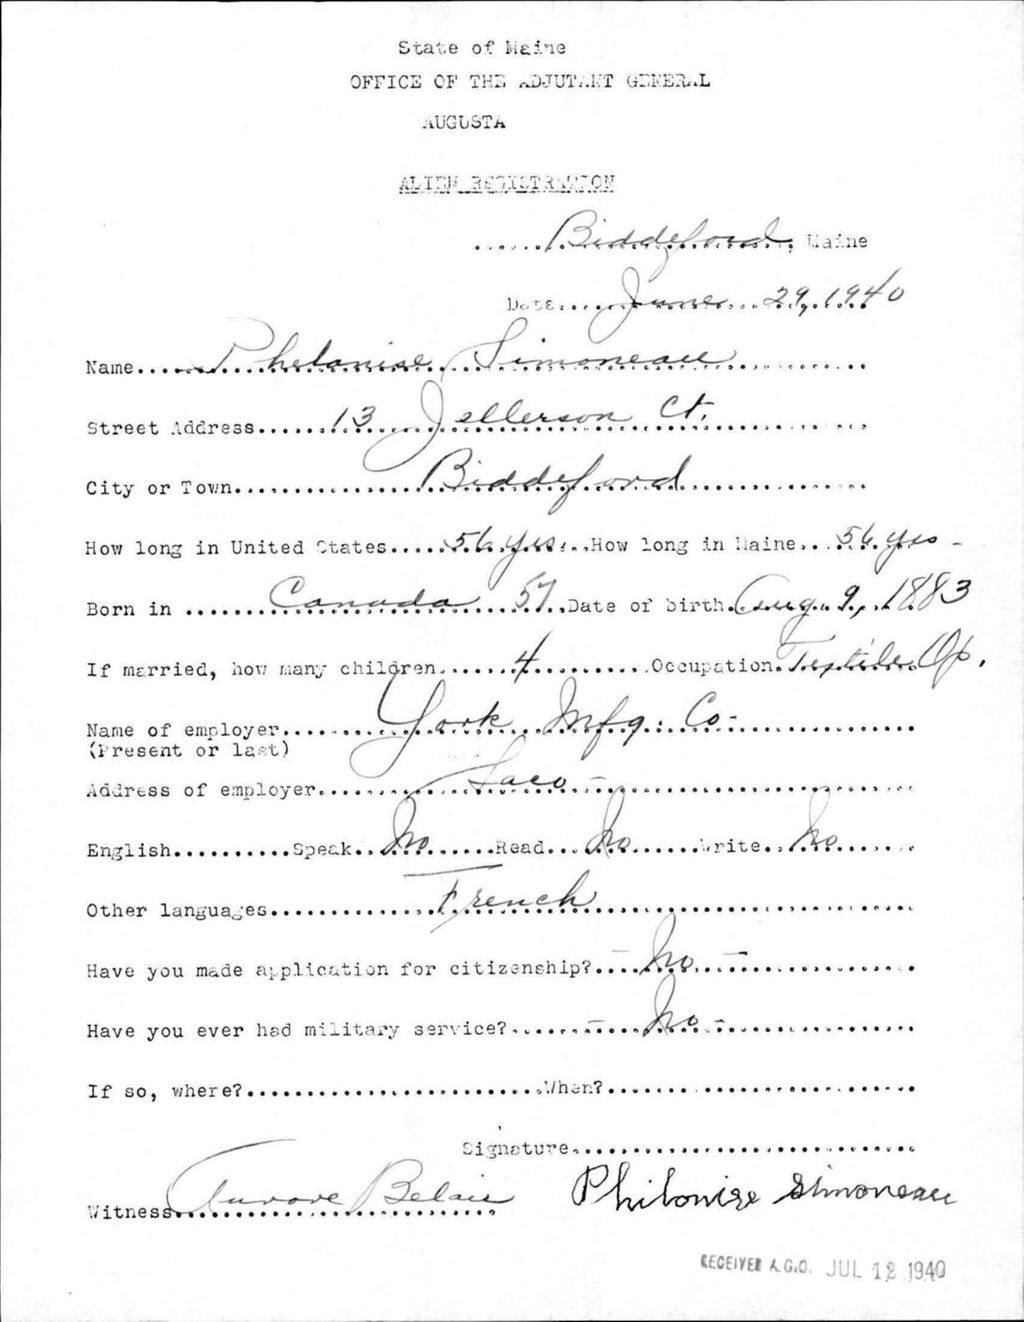 State of Maine
OFFICE OF THE ADJUTANT GENERAL
AUGUSTA
ALIEN REGISTRATION
Biddeford, Maine
Date June 29, 1940
Name Phelanise Simoneau
Street Address 13 Jellerson Ct.
City or Town Biddeford
How long in United States 56 yrs. How long in Maine 56 yrs -
Born in Canada 57 Date of birth Aug. 9, 1883
If married, how many children 4 Occupation Textile Op.
Name of employer York Mfg. Co -
(Present or last)
Address of employer Saco -
English Speak No Read No Write No
Other languages French
Have you made application for citizenship? - No -
Have you ever had military service? - No -
If so, where? When?
Signature
Witness Aurore Belair Philonise Simoneau
RECEIVED A.G.O. JUL 12 1940